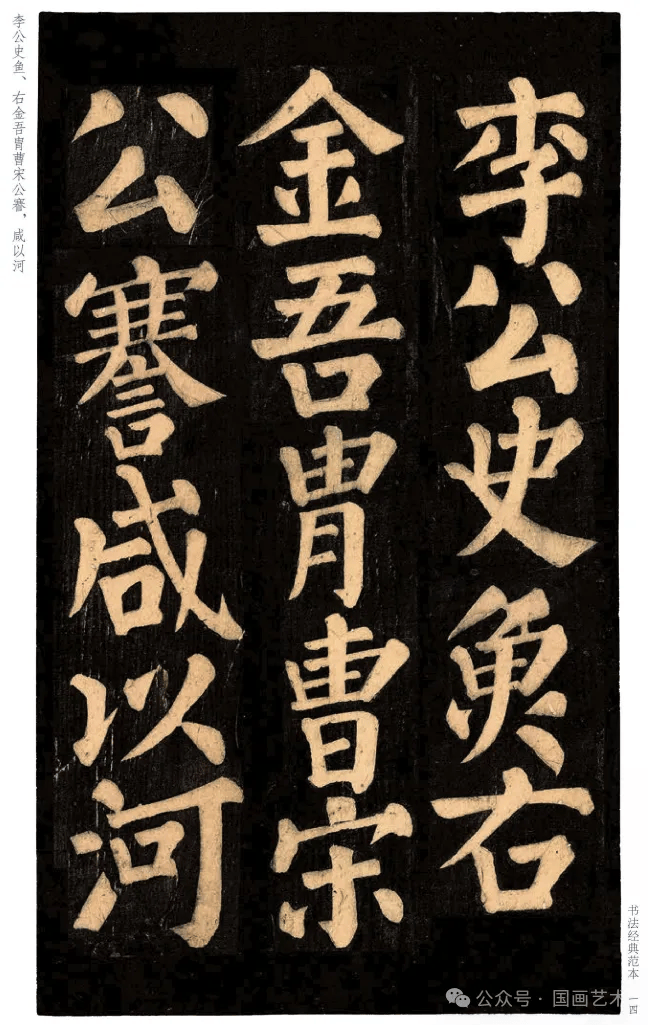 李公史魚右
金吾胄曹宋
公謇咸以河
李公史鱼、右金吾胄曹宋公謇，咸以河
书法经典范本 一四
公众号 · 国画艺术